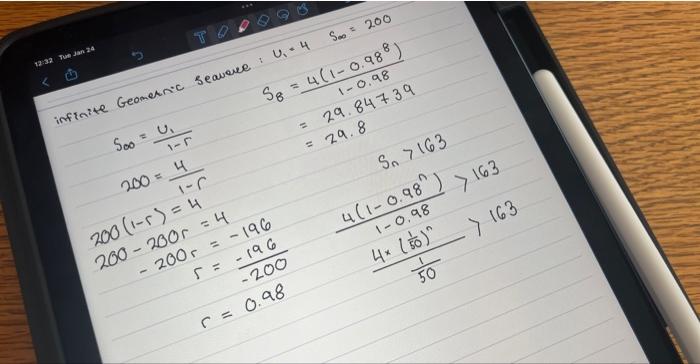 12:32 Tue Jan 24
infinite Geometric Seavence : U₁ = 4 S∞ = 200
S∞ = U₁/1-r
200 = 4/1-r
200 (1-r) = 4
200 - 200r = 4
- 200r = -196
r = -196/-200
r = 0.98
S₈ = 4(1-0.98⁸)/1-0.98
= 29.84739
= 29.8
Sₙ > 163
4(1-0.98ⁿ)/1-0.98 > 163
4×(1/50)ⁿ/(1/50) > 163